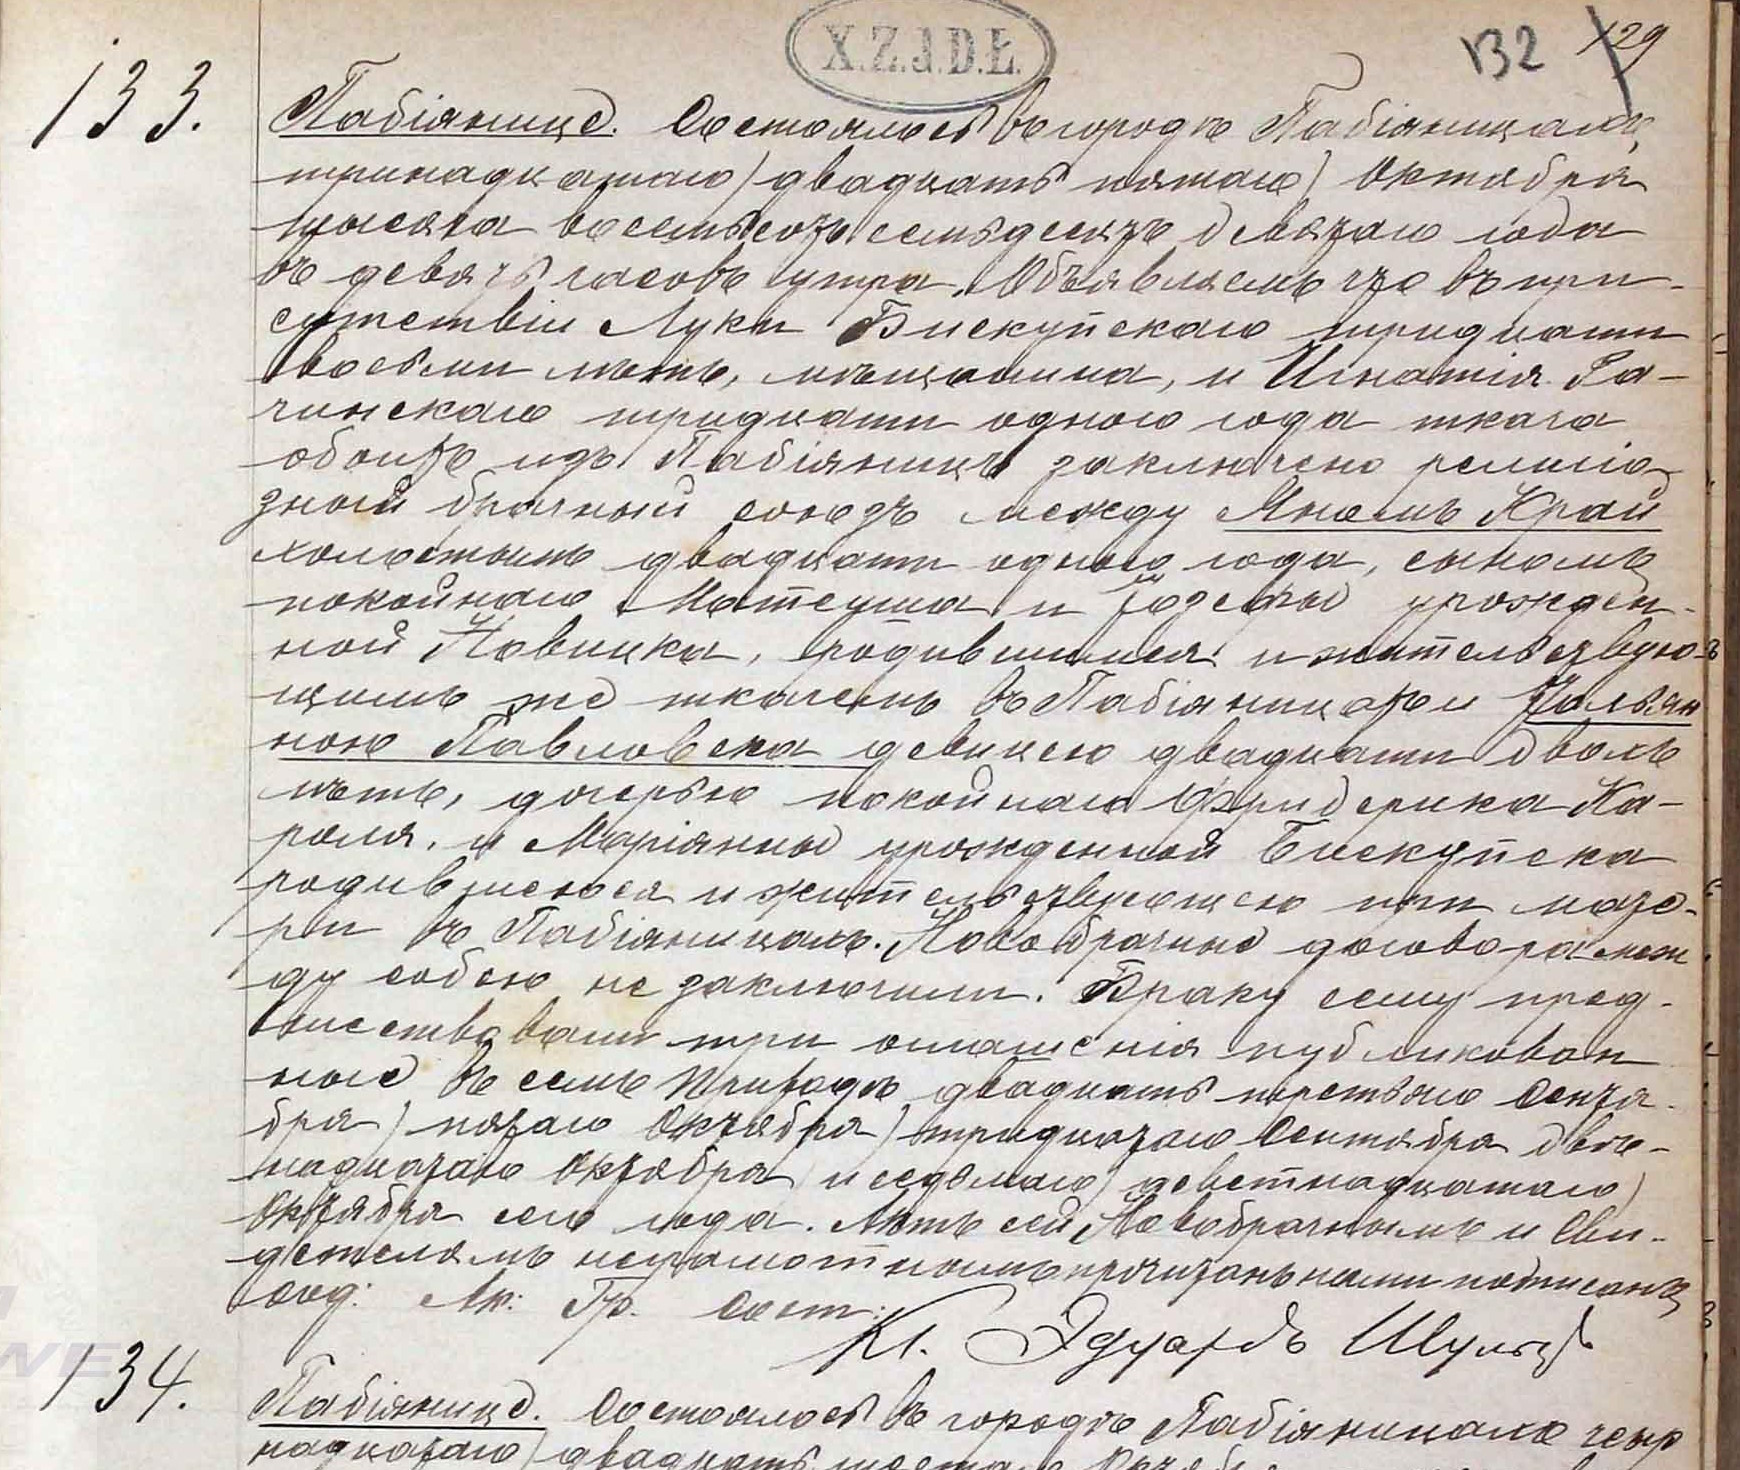 X.Z.J.D.Ł.
132 129
133.
Пабіяницe. Состоялось въ городѣ Пабіяницахъ
тринадцатаго) двадцать пятаго) Октября
тысяча восемьсотъ семьдесятъ девятаго года
въ девять часовъ утра. Объявляемъ что въ при-
сутствіи Луки Бискупскаго тридцати
восьми лѣтъ, мѣщанина, и Игнатія Ра-
чинскаго тридцати одного года ткача
обоихъ изъ Пабіяницъ заключено религіо-
зный брачный союзъ между Яномъ Край
холостымъ двадцати одного года, сыномъ
покойнаго Матеуша и Юзефы урожден-
ной Новицка, родившимся и жительствую-
щимъ же ткачемъ въ Пабіяницахъ и Юльян
ною Павловска девицею двадцати двохъ
лѣтъ, дочерью покойнаго Фридерика Ка-
роля, и Маріянны урожденной Бискупска
родившеюся и жительствующею при мате-
ри въ Пабіяницахъ. Новобрачные договора меж
ду собою не заключили. Браку сему пред-
шествовали три оглашенія публикован
ные въ семъ приходѣ двадцать третьяго Сентя-
бря) пятаго Октября) тридцатаго Сентября двѣ-
надцатаго Октября и седьмаго) деветнадцатаго)
Октября сего года. Актъ сей Новобрачнымъ и Сви-
детелямъ неграмотнымъ прочитанъ нами подписанъ
Сод: Ак: Гр. Сост:
Кс. Эдуардъ Шульцъ
134.
Пабіяницe. Состоялось въ городѣ Пабіяницахъ четыр
надцатаго) двадцать шестаго Октября